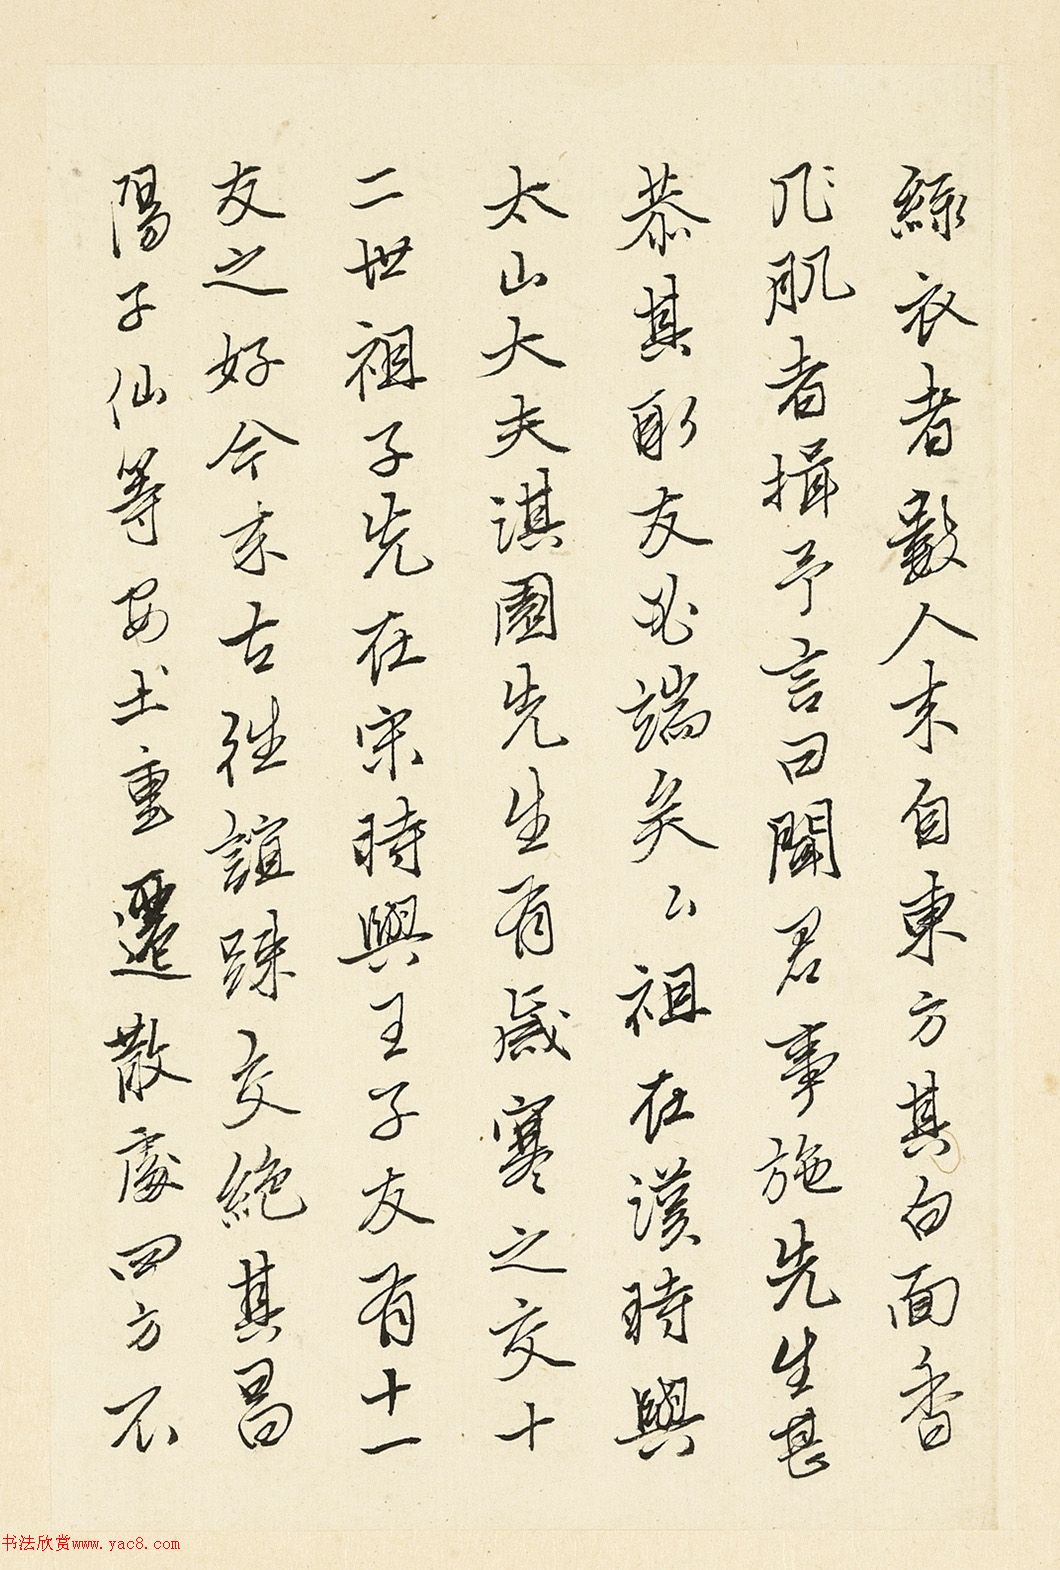 綠衣者數人來自東方其白面香
肌肌者揖予言曰聞君事施先生甚
恭其取友必端矣公祖在漢時與
太山大夫淇園先生有歲寒之交十
二世祖子先在宋時與王子友有十一
友之好今來古往誼踈交絕其昌
陽子仙等安土重遷散處四方不
书法欣赏www.yac8.com